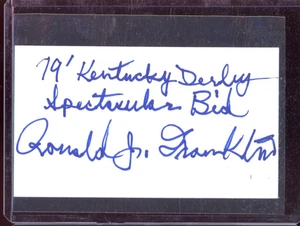 79' Kentucky Derby
Spectacular Bid
Ronald Jr. Franklin